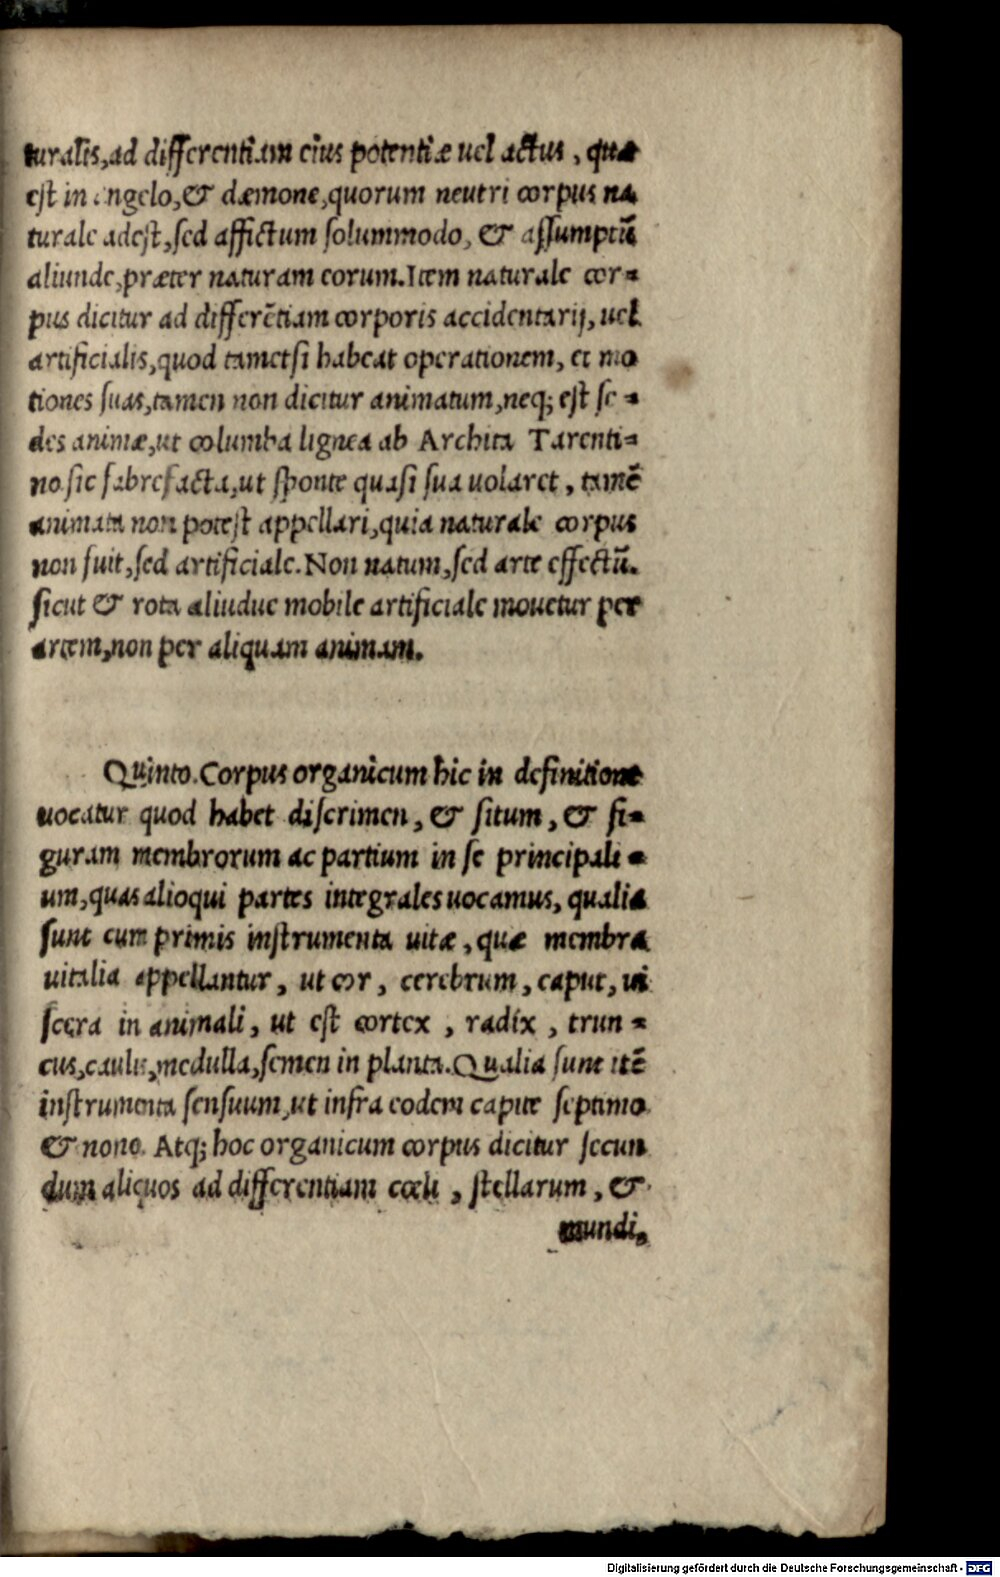 turalis,ad differentiam eius potentiæ uel actus, quæ
est in angelo,& dæmone,quorum neutri corpus na
turale adest,sed affictum solummodo, & assumptũ
aliunde,præter naturam eorum.Item naturale cor=
pus dicitur ad differẽtiam corporis accidentarij, uel
artificialis,quod tametsi habeat operationem, et mo
tiones suas,tamen non dicitur animatum,neq; est se =
des animæ,ut columba lignea ab Archita Tarenti=
no sic fabrefacta,ut sponte quasi sua uolaret, tamẽ
animata non potest appellari,quia naturale corpus
non fuit,sed artificiale.Non natum,sed arte effectũ.
sicut & rota aliudue mobile artificiale mouetur per
artem,non per aliquam animam.
Quinto.Corpus organicum hic in definitione
uocatur quod habet discrimen, & situm, & fi=
guram membrorum ac partium in se principali =
um,quas alioqui partes integrales uocamus, qualia
sunt cum primis instrumenta uitæ, quæ membra
uitalia appellantur, ut cor, cerebrum, caput, ui
scera in animali, ut est cortex, radix, trun =
cus,caulis,medulla,semen in planta.Qualia sunt itẽ
instrumenta sensuum,ut infra eodem capite septimo
& nono. Atq; hoc organicum corpus dicitur secun
dum aliquos ad differentiam cœli, stellarum, &
mundi,
Digitalisierung gefördert durch die Deutsche Forschungsgemeinschaft - DFG